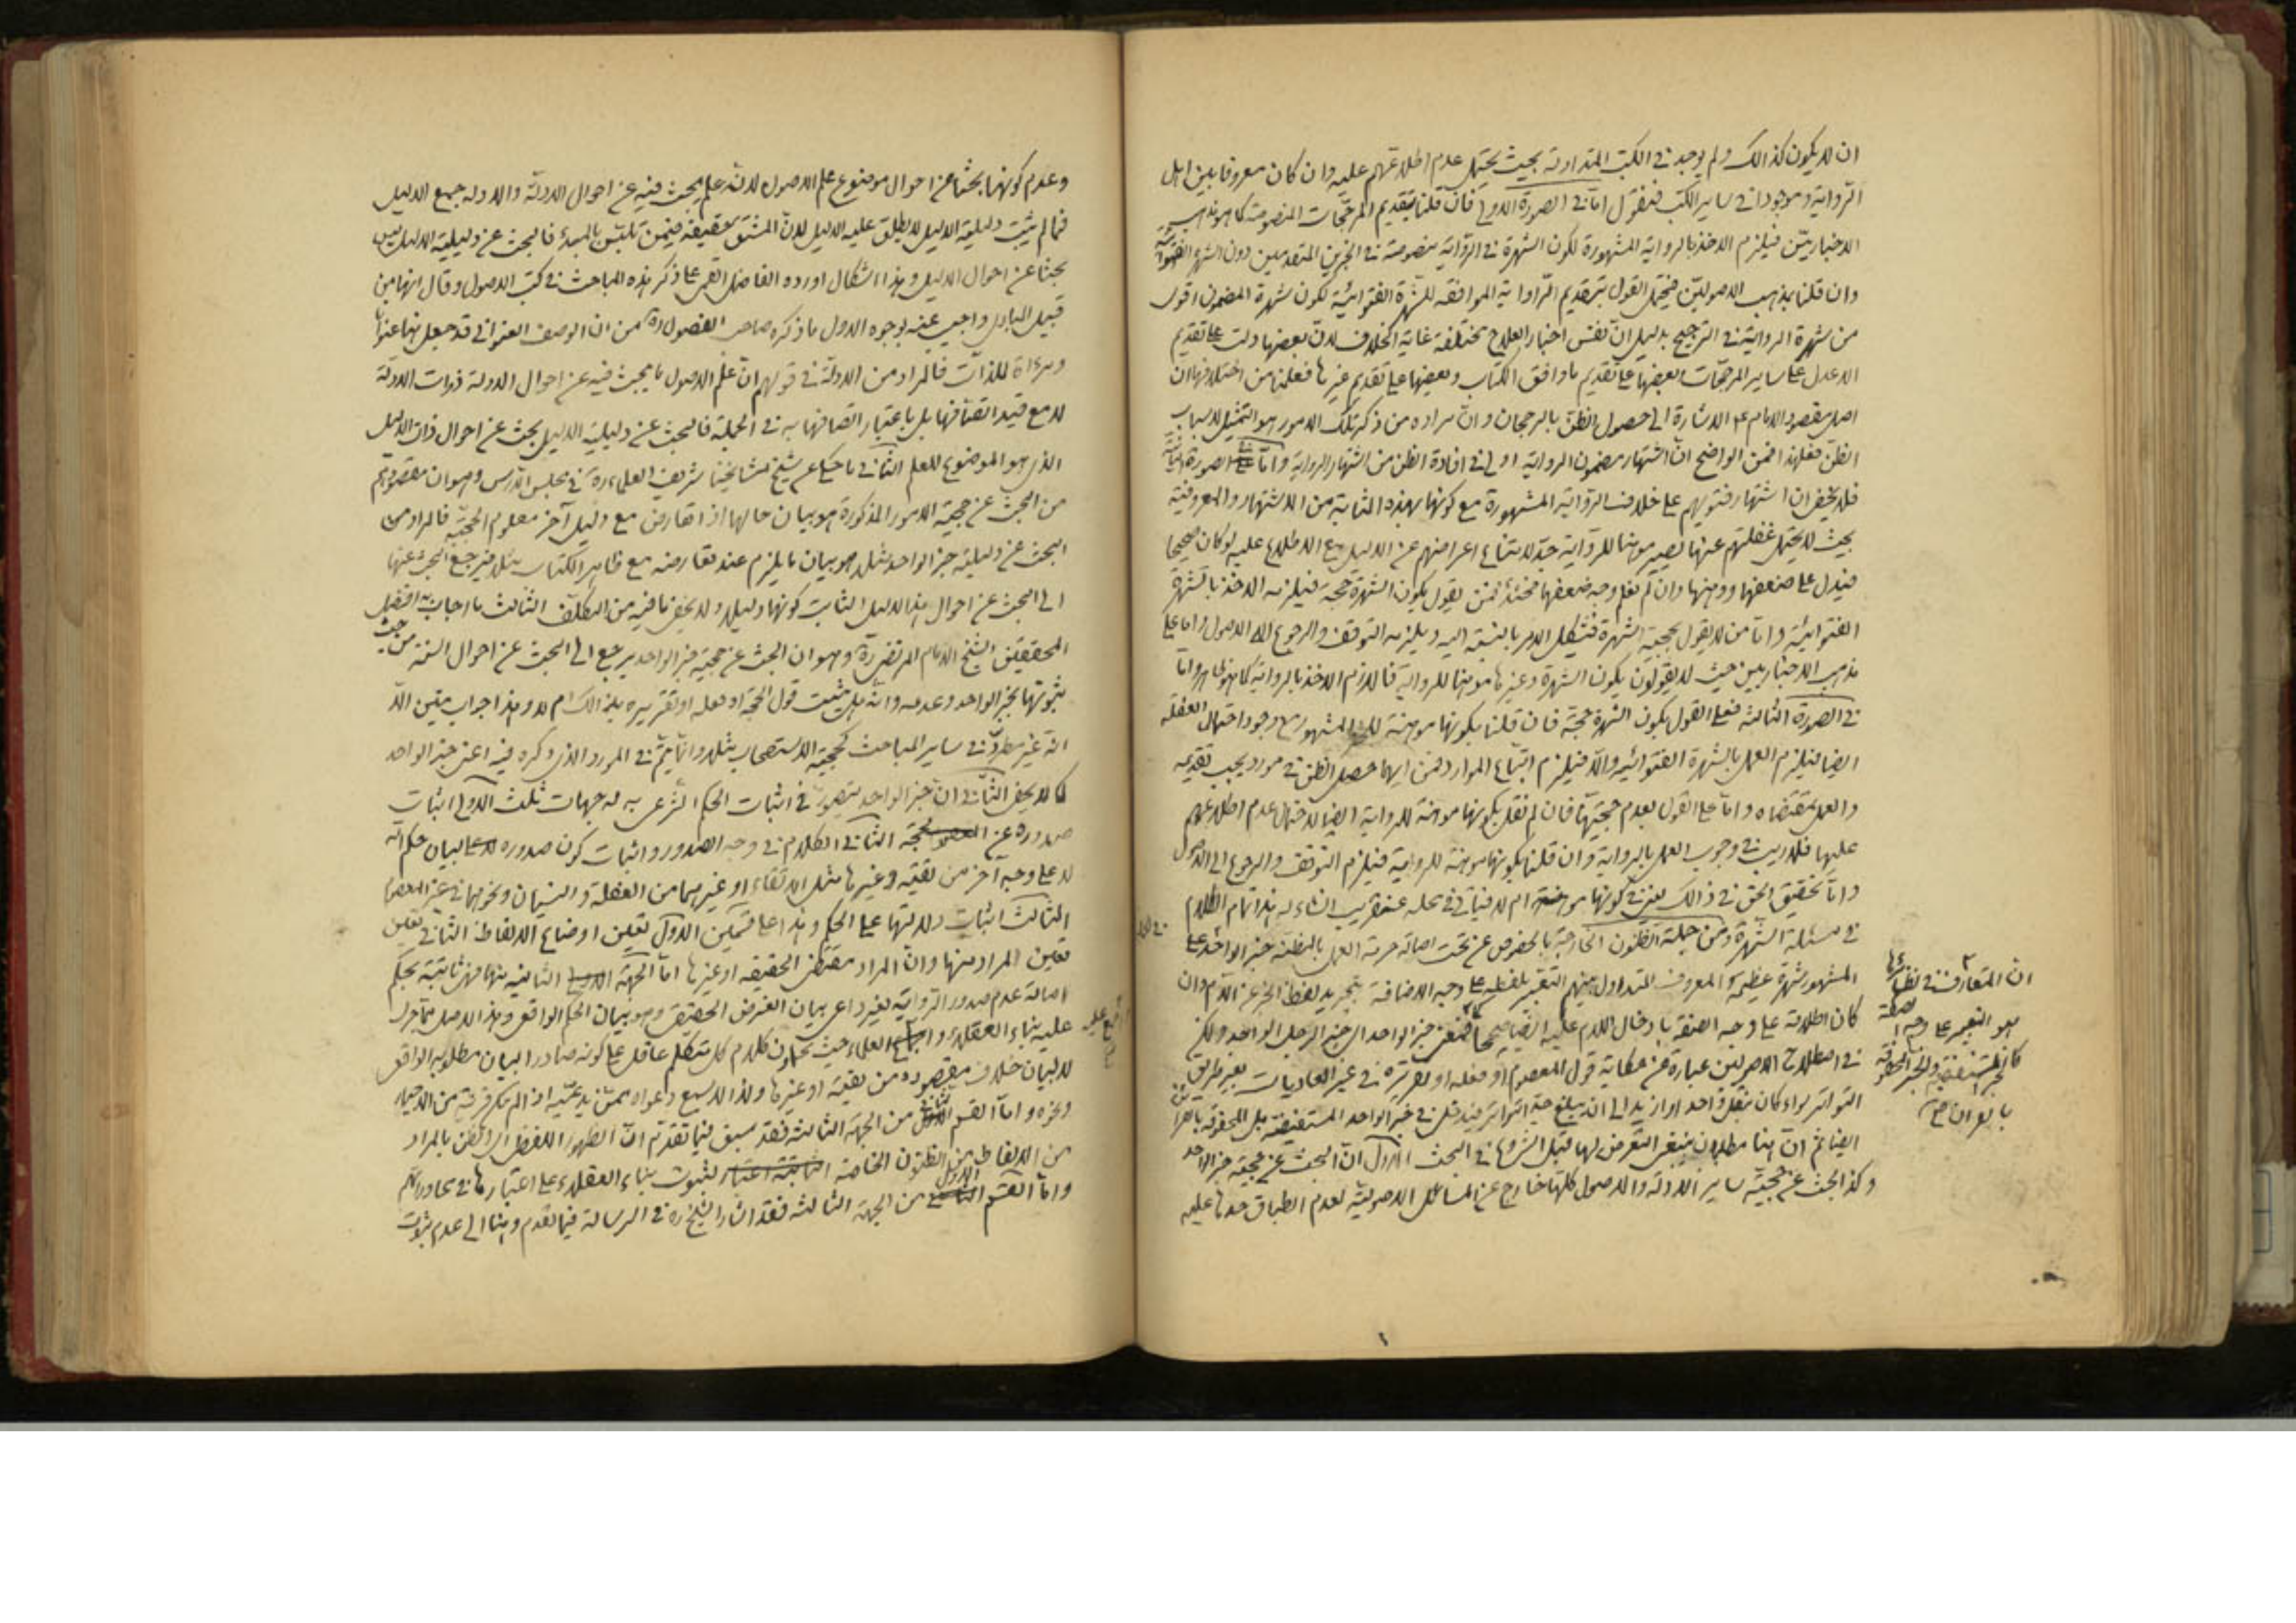 ان لا يكون كذالك ولم يوجد في الكتب المتداولة بحيث يحتمل عدم اطلاعهم عليه وان كان معروفا بين اهل
الرواية وموجودا في ساير الكتب فنقول امّا في الصورة الاولى فان قلنا بتقديم المرجّحات المنصوصة كما هو مذهب
الاخباريّين فيلزم الاخذ بالرواية المشهورة لكون الشهرة في الرّواية منصوصة في الخبرين المتقدمين دون الشهرة الفتوائيّة
وان قلنا بمذهب الاصوليّين فيحتمل القول بتقديم الرّواية الموافقة للشهرة الفتوائيّة لكون شهرة المضمون اقوى
من شهرة الرواية في الترجيح بدليل انّ نفس اخبار العلاج مختلفة غاية الخلاف لانّ بعضها دلت على تقديم
الاعدل على ساير المرجّحات وبعضها على تقديم ما وافق الكتاب وبعضها على تقديم غيرها فعلمنا من اختلافها ان
اصل مقصود الامام ع الاشارة الى حصول الظنّ بالرجحان وانّ مراده من ذكر تلك الامور هو التمثيل لاسباب
الظنّ فعلى هذا فمن الواضح انّ اشتهار مضمون الرواية اولى في افادة الظن من اشتهار الرواية وامّا في الصورة الثانية
فلا يخفى ان اشتهار فتويهم على خلاف الرّواية المشهورة مع كونها بهذه المثابة من الاشتهار والمعروفية
بحيث لا يحتمل غفلتهم عنها يصير موهنا للرّواية جدّا لامتناع اعراضهم عن الدليل مع الاطلاع عليه لو كان صحيحا
فيدل على ضعفها ووهنها وان لم نعلم وجه ضعفها فحينئذ فمن يقول بكون الشهرة حجة فيلزمه الاخذ بالشهرة
الفتوائيّة وامّا من لا يقول بحجية الشهرة فيشكل الامر بالنسبة اليه ويلزمه التوقف والرجوع الى الاصول وامّا على
مذهب الاخباريين حيث لا يقولون بكون الشهرة وغيرها موهنا للرواية فاللازم الاخذ بالرواية كما هو ظاهر وامّا
في الصورة الثالثة فعلى القول بكون الشهرة حجّة فان قلنا بكونها موهنة للخبر المشهور مع وجود احتمال الغفلة
ايضا فيلزم العمل بالشهرة الفتوائيّة والّا فيلزم اتباع الموارد فمن ايهما حصل الظن في مورد يجب تقديمه
والعمل بمقتضاه وامّا على القول بعدم حجيّتها فان لم نقل بكونها موهنة للرواية ايضا لاحتمال عدم اطلاعهم
عليها فلا ريب في وجوب العمل بالرواية وان قلنا بكونها موهنة للرواية فيلزم التوقف والرجوع الى الاصول
وامّا تحقيق الحق في ذالك يعني في كونها موهنة ام لا فياتي في محله عنقريب انشاء الله هذا تمام الكلام
في مسئلة الشهرة ومن جملة الظنون الخارجة بالخصوص عن تحت اصالة حرمة العمل بالمظنة خبر الواحد على
المشهور شهرة عظيمة المعروف المتداول بينهم التعبير بلفظه على وجه الاضافة بتجريد لفظ الخبر عن اللّام وان
كان اطلاقه على وجه الصفة بادخال اللام عليه ايضا صحيحا فمعنى خبر الواحد اي خبر الرجل الواحد ولكن
في اصطلاح الاصوليين عبارة عن حكاية قول المعصوم او فعله او تقريره في غير العاديات بغير طريق
التواتر سواء كان بنقل واحد او ازيد الى ان يبلغ حدّ التواتر فيدخل في خبر الواحد المستفيضة بل المحفوفة بالقرائن
ايضا ثم انّ هنا مطلبان ينبغي التعرض لها قبل الشروع في البحث الاوّل انّ البحث عن حجيّة خبر الواحد
وكذا البحث عن حجيّة ساير الادلّة والاصول كلها خارج عن المسائل الاصوليّة لعدم انطباق حدها عليه
ان المتعارف في نظائرها
هو التعبير على وجه الصفة
كالخبر المستفيض والخبر المحفوف
بالقرائن صح
وعدم كونها بحثا عن احوال موضوع علم الاصول لانّه علم يبحث فيه عن احوال الادلّة والادلة جمع الدليل
فما لم يثبت دليلية الدليل لا يطلق عليه الدليل لانّ المشتق حقيقة فيمن تلبّس بالمبدء فالبحث عن دليلية الدليل ليس
بحثا عن احوال الدليل وهذا اشكال اورده الفاضل القمي على ذكر هذه المباحث في كتب الاصول وقال انها من
قبيل المبادى واجيب عنه بوجوه الاول ما ذكره صاحب الفصول ره من ان الوصف العنواني قد جعل هنا عنوانا
ومرءاة للذّات فالمراد من الادلّة في قولهم ان علم الاصول ما يبحث فيه عن احوال الادلة ذوات الادلّة
لا مع قيد اتصافها بل باعتبار اتصافها به في الجملة فالبحث عن دليلية الدليل بحث عن احوال ذات الدليل
الذي هو الموضوع للعلم الثّاني ما حكي عن شيخ مشايخنا شريف العلماء ره في مجلس الدّرس وهو ان مقصودهم
من البحث عن حجية الامور المذكورة هو بيان حالها اذا تعارض مع دليل آخر معلوم الحجيّة فالمراد من
البحث عن دليلية خبر الواحد مثلا هو بيان ما يلزم عند تعارضه مع ظاهر الكتاب مثلا فيرجع البحث عنها
الى البحث عن احوال هذا الدليل الثابت كونها دليلا ولا يخفى ما فيه من التكلّف الثّالث ما اجاب به افضل
المحققين الشيخ الامام المرتضى ره وهو ان البحث عن حجية خبر الواحد يرجع الى البحث عن احوال السنة من حيث
ثبوتها بخبر الواحد وعدمه وانّه هل يثبت قول الحجة او فعله او تقريره بذالك ام لا وهذا جواب متين الّا
انّه غير مطرد في ساير المباحث كحجية الاستصحاب مثلا وانّما يتمّ في المورد الذي ذكره فيه اعني خبر الواحد
كما لا يخفى الثّاني انّ خبر الواحد يتصوّر في اثبات الحكم الشّرعي به له جهات ثلث الاولى اثبات
صدوره عن الحجة الثاني الكلام في وجه الصّدور واثبات كون صدوره لبيان حكم اللّه
لا على وجه آخر من تقيّة وغيرها مثل الاتقاء او غيرهما من الغفلة والنسيان ونحوهما في غير المعصوم
الثالث اثبات دلالتها على الحكم وهذا على قسمين الاوّل تعيين اوضاع الالفاظ الثاني تعيين
تعيين المراد منها وانّ المراد مقتضى الحقيقة او غيرها امّا الجهة الثانية منها فهي ثابتة بحكم
اصالة عدم صدور الرّواية بغير داعي بيان الغرض الحقيقي وهو بيان الحكم الواقعي وهذا الاصل ممّا جرى
عليه بناء العقلاء واجماع العلماء حيث يحملون كلام كل متكلم عاقل على كونه صادرا لبيان مطلوبه الواقعي
لا لبيان خلاف مقصوده من تقية او غيرها ولذا لا يسمع دعواه ممّن يدعيه اذا لم يكن قرينة من الاخبار
ونحوه وامّا القسم الثاني من الجهة الثالثة فقد سبق فيما تقدّم انّ الظهور اللفظي اي الظن بالمراد
من الالفاظ من الظنون الخاصة لثبوت بناء العقلاء على اعتبارها في محاوراتهم
وامّا القسم الاول من الجهة الثالثة فقد اشار الشيخ ره في الرسالة فيما تقدم وهنا الى عدم ثبوت